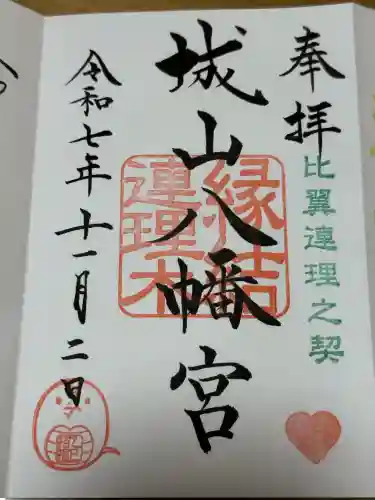 奉拝
比翼連理之契
城山八幡宮
縁結
連理木
令和七年十一月二日